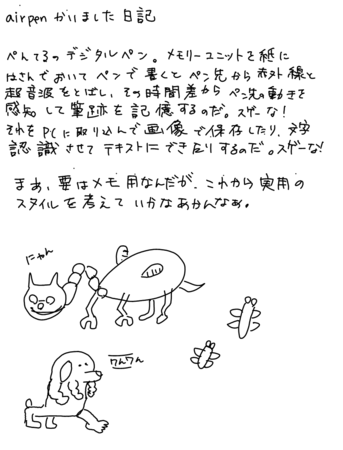 airpen かいました日記
ぺんてるのデジタルペン。メモリーユニットを紙に
はさんでおいてペンで書くとペン先から赤外線と
超音波をとばし、その時間差からペン先の動きを
感知して筆跡を記憶するのだ。スゲーな!
それをPCに取り込んで画像で保存したり、文字
認識させてテキストにできたりするのだ。スゲーな!
まぁ、要はメモ用なんだが、これから実用の
スタイルを考えていかなあかんなぁ。
にゃん
ワンワン